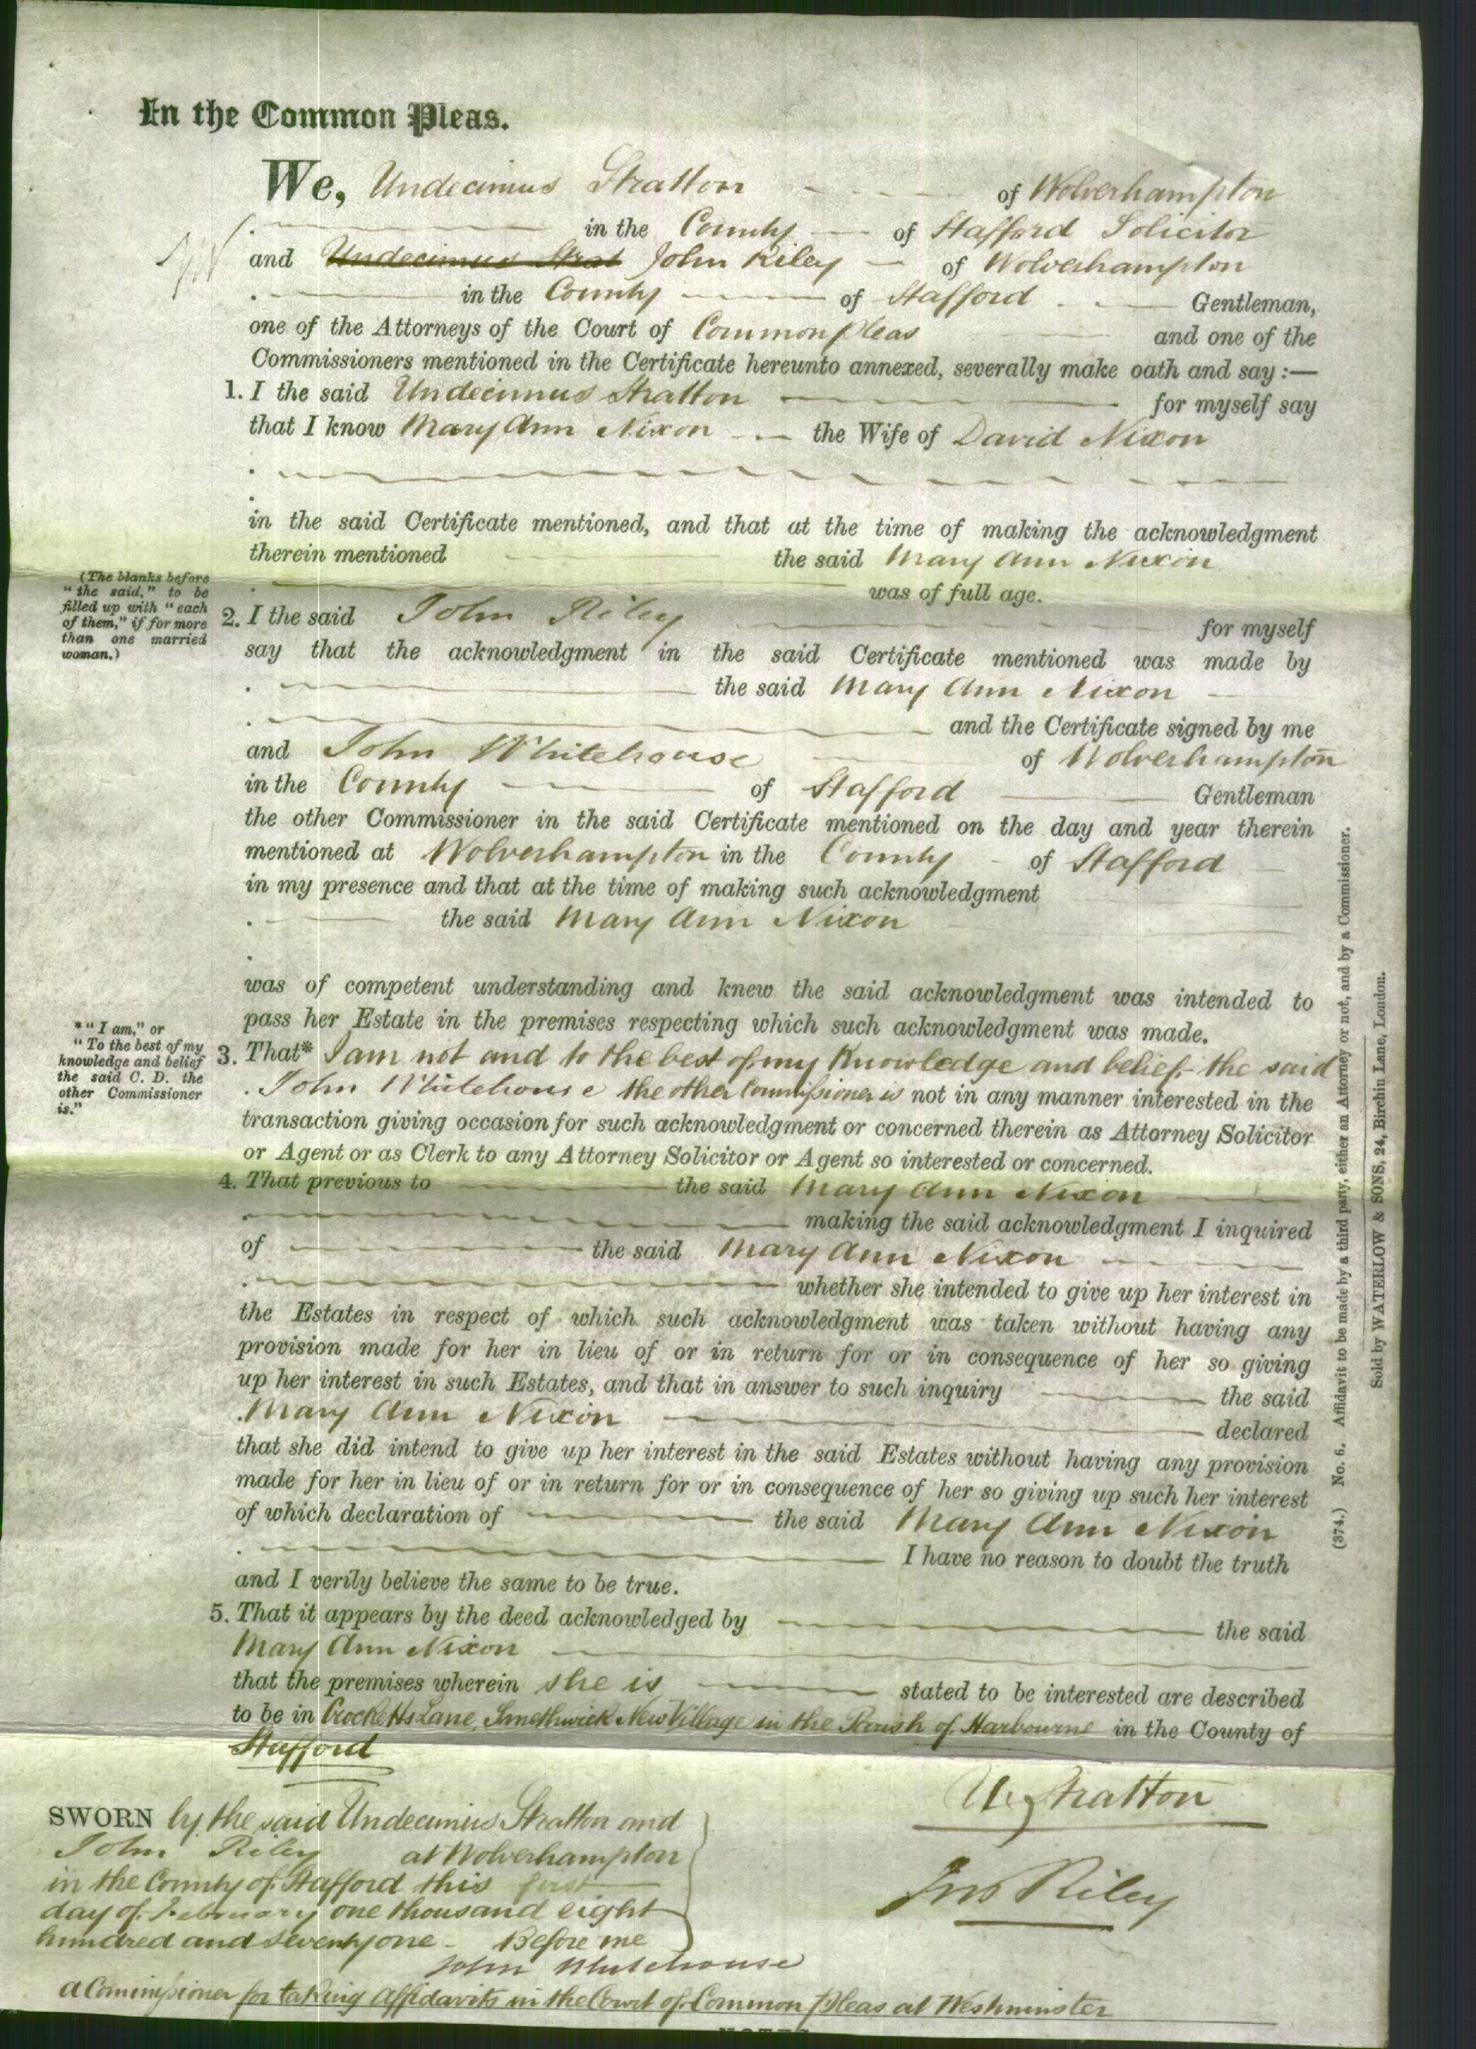 In the Common Pleas.
We, Undecimus Stratton of Wolverhampton
in the County of Stafford Solicitor
and Undecimus Strat John Riley of Wolverhampton
in the County of Stafford Gentleman,
one of the Attorneys of the Court of Common Pleas and one of the
Commissioners mentioned in the Certificate hereunto annexed, severally make oath and say :—
1. I the said Undecimus Stratton for myself say
that I know Mary Ann Nixon the Wife of David Nixon
in the said Certificate mentioned, and that at the time of making the acknowledgment
therein mentioned the said Mary Ann Nixon
was of full age.
(The blanks before
"the said," to be
filled up with "each
of them," if for more
than one married
woman.)
2. I the said John Riley for myself
say that the acknowledgment in the said Certificate mentioned was made by
the said Mary Ann Nixon
and the Certificate signed by me
and John Whitehouse of Wolverhampton
in the County of Stafford Gentleman
the other Commissioner in the said Certificate mentioned on the day and year therein
mentioned at Wolverhampton in the County of Stafford
in my presence and that at the time of making such acknowledgment
the said Mary Ann Nixon
was of competent understanding and knew the said acknowledgment was intended to
pass her Estate in the premises respecting which such acknowledgment was made.
* "I am," or
"To the best of my
knowledge and belief
the said C. D. the
other Commissioner
is."
3. That* I am not and to the best of my Knowledge and belief the said
John Whitehouse the other Commissioner is not in any manner interested in the
transaction giving occasion for such acknowledgment or concerned therein as Attorney Solicitor
or Agent or as Clerk to any Attorney Solicitor or Agent so interested or concerned.
4. That previous to the said Mary Ann Nixon
making the said acknowledgment I inquired
of the said Mary Ann Nixon
whether she intended to give up her interest in
the Estates in respect of which such acknowledgment was taken without having any
provision made for her in lieu of or in return for or in consequence of her so giving
up her interest in such Estates, and that in answer to such inquiry the said
Mary Ann Nixon declared
that she did intend to give up her interest in the said Estates without having any provision
made for her in lieu of or in return for or in consequence of her so giving up such her interest
of which declaration of the said Mary Ann Nixon
I have no reason to doubt the truth
and I verily believe the same to be true.
5. That it appears by the deed acknowledged by the said
Mary Ann Nixon
that the premises wherein she is stated to be interested are described
to be in Crocketts Lane, Smethwick New Village in the Parish of Harbourne in the County of
Stafford
SWORN by the said Undecimus Stratton and
John Riley at Wolverhampton
in the County of Stafford this first
day of February one thousand eight
hundred and seventy one - Before me
John Whitehouse
a Commissioner for taking Affidavits in the Court of Common Pleas at Westminster
U. Stratton
Jno Riley
(374.) No. 6. Affidavit to be made by a third party, either an Attorney or not, and by a Commissioner.
Sold by WATERLOW & SONS, 24, Birchin Lane, London.